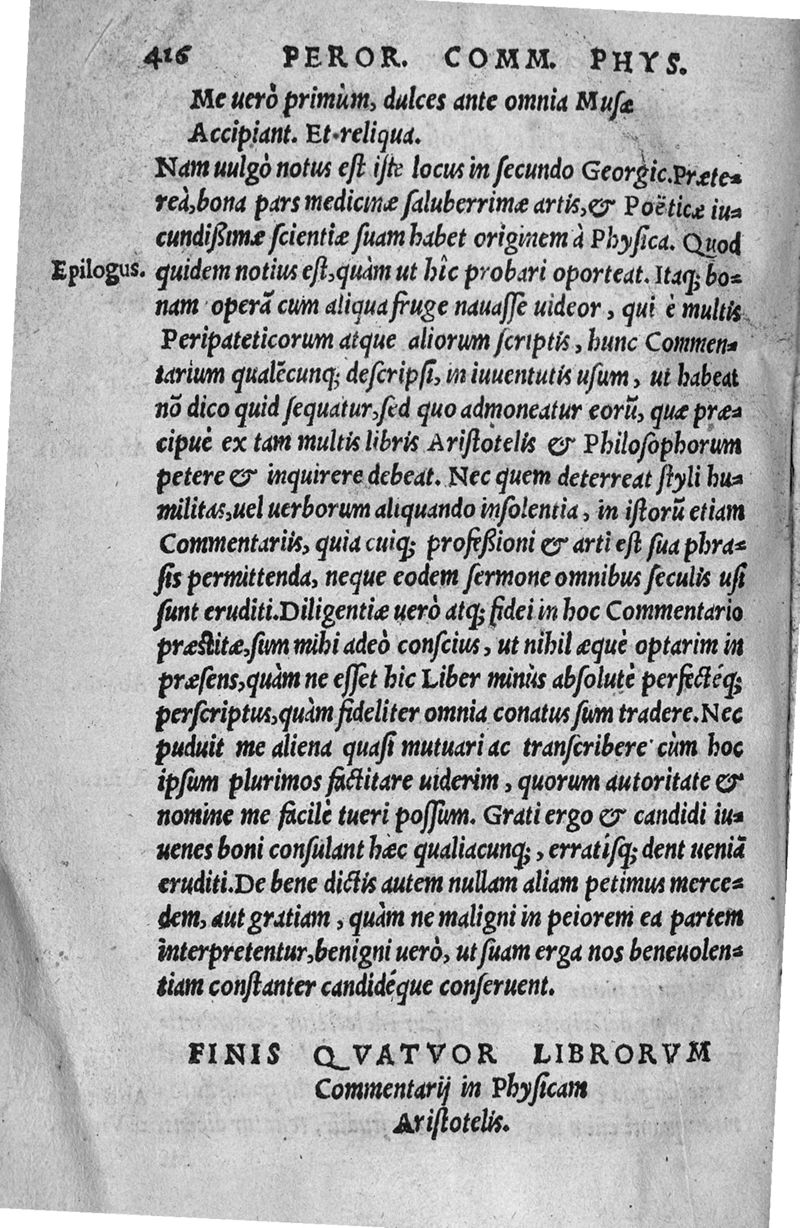 416 PEROR. COMM. PHYS.
Me uerò primùm, dulces ante omnia Musæ
Accipiant. Et reliqua.
Nam uulgò notus est iste locus in secundo Georgic. Præte-
reà, bona pars medicinæ saluberrimæ artis, & Poëticæ iu-
cundißimæ scientiæ suam habet originem à Physica. Quod
Epilogus. quidem notius est, quàm ut hîc probari oporteat. Itaq; bo-
nam operā cum aliqua fruge nauasse uideor, qui è multis
Peripateticorum atque aliorum scriptis, hunc Commen-
tarium qualēcunq; descripsi, in iuuentutis usum, ut habeat
nō dico quid sequatur, sed quo admoneatur eorū, quæ præ-
cipuè ex tam multis libris Aristotelis & Philosophorum
petere & inquirere debeat. Nec quem deterreat styli hu-
militas, uel uerborum aliquando insolentia, in istorū etiam
Commentariis, quia cuiq; profeßioni & arti est sua phra-
sis permittenda, neque eodem sermone omnibus seculis usi
sunt eruditi. Diligentiæ uerò atq; fidei in hoc Commentario
præstitæ, sum mihi adeò conscius, ut nihil æquè optarim in
præsens, quàm ne esset hic Liber minùs absolutè perfectéq;
perscriptus, quàm fideliter omnia conatus sum tradere. Nec
puduit me aliena quasi mutuari ac transcribere cùm hoc
ipsum plurimos factitare uiderim, quorum autoritate &
nomine me facilè tueri possum. Grati ergo & candidi iu-
uenes boni consulant hæc qualiacunq;, erratisq; dent ueniā
eruditi. De bene dictis autem nullam aliam petimus merce-
dem, aut gratiam, quàm ne maligni in peiorem ea partem
interpretentur, benigni uerò, ut suam erga nos beneuolen-
tiam constanter candidéque conseruent.
FINIS QVATVOR LIBRORVM
Commentarij in Physicam
Aristotelis.